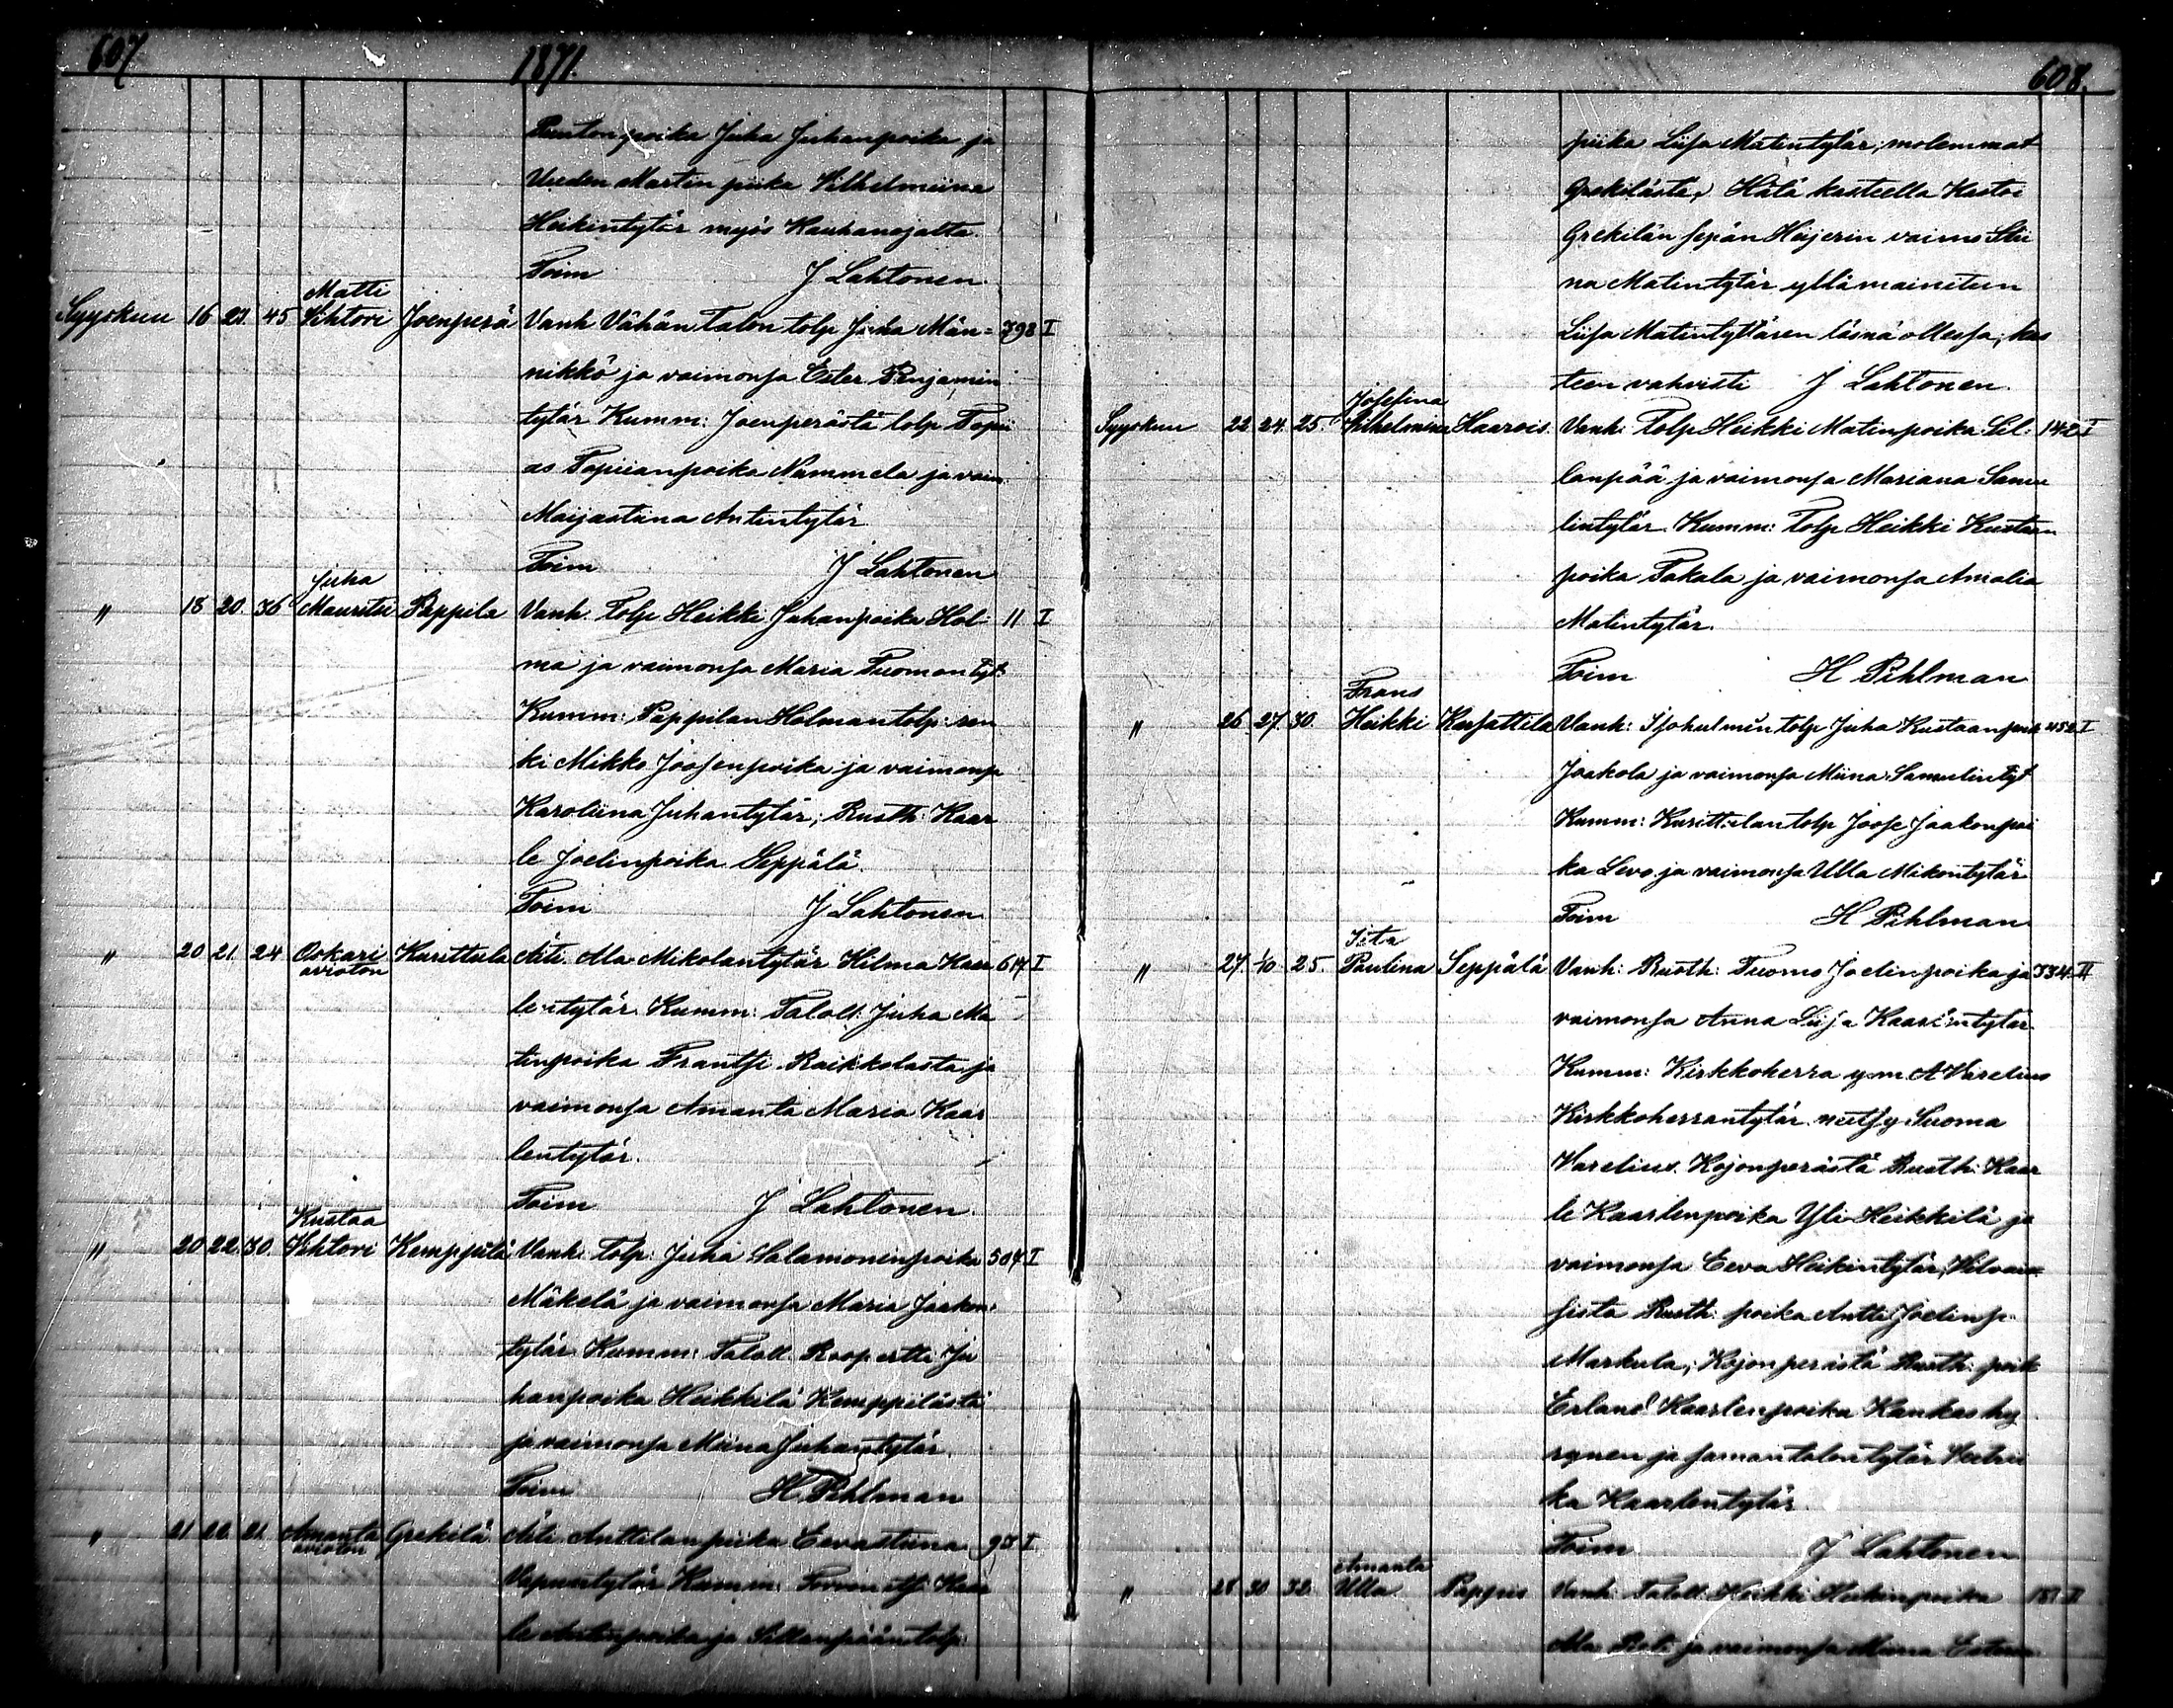 607
1871.
poika Juha Juhanpoika ja
Uuden Martin piika Vilhelmiina
Heikintytär myös Kauhanojalta.
Toim J Lahtonen
Matti
Syyskuu 16 23. 45 Vihtori Joenperä Vanh Vähän Talon tolp Juha Män= 398 I
nikkö ja vaimonsa Ester Penjamin
tytär Kumm: Joenperästä tolp Topi
as Topiaanpoika Nummela ja vaim
Maijastiina Antintytär
Toim J Lahtonen
Juha
" 18 20. 36 Mauritsi Pappila Vanh. Tolp Heikki Juhanpoika Hol- 11 I
ma ja vaimonsa Maria Tuomantyt:
Kumm: Pappilan Holman tolp: ren
ki Mikko Joosenpoika ja vaimonsa
Karoliina Juhantytär; Rusth: Kaar
le Joelinpoika Seppälä.
Toim J Lahtonen
" 20 21. 24 Oskari Kurittula Äiti. Ala Mikolantytär Hilma Kaar 617 I
avioton
lentytär. Kumm: Taloll: Juha Ma
tinpoika Frantsi Raikkolasta ja
vaimonsa Amanta Maria Kaar
lentytär.
Toim J Lahtonen
Kustaa
" 20 22. 30. Vihtori Kemppilä Vanh: Tolp: Juha Salamonenpoika 504 I
Mäkelä ja vaimonsa Maria Jaakon-
tytär. Kumm: Taloll: Roopertti Ju
hanpoika Heikkilä Kemppilästä
ja vaimonsa Miina Juhantytär.
Toim H. Pihlman
" 21 22. 21. Amanta Grekilä Äiti Anttilan piika Eevastiina 93 I
avioton
Kumm:
le Antinpoika ja Sillanpään tolp:
608.
piika Liisa Matintytär, molemmat
Grekilästä. Hätä kasteella Kastoi
Grekilän sepän Höijerin vaimo Stii
na Matintytär yllämainitun
Liisa Matintyttären läsnä ollessa; kas
teen vahvisti J Lahtonen.
Josefina
Syyskuu 22 24. 25. Vilhelmina Haarois. Vanh: Tolp Heikki Matinpoika Sil- 142 I
lanpää ja vaimonsa Mariana Samu
lintytär. Kumm: Tolp Heikki Kustaan
poika Takala ja vaimonsa Amalia
Matintytär.
Toim H Pihlman
Frans
" 26. 27. 30. Heikki Karsattila Vanh: tolp Juha Kustaanpoik 452 I
Jaakola ja vaimonsa Miina Samulintyt
Kumm: Kurittulan tolp Joose Jaakonpoi
ka Levo ja vaimonsa Ulla Mikontytär
Toim H Pihlman
Iita
" 27. 1/10 25. Paulina Seppälä Vanh: Rusth: Tuomo Joelinpoika ja 334 II
vaimonsa Anna Liisa
Kumm: Kirkkoherra y.m. A Varelius
Kirkkoherrantytär neitsy Suoma
Varelius. Kojonperästä Rusth: Kaar
le Kaarlenpoika Yli Heikkilä ja
vaimonsa Eeva Heikintytär,
sista Rusth: poika Antti Joelinp.
Markula; Kojonperästä Rusth: poik
Erland Kaarlenpoika Kankashy
rynen ja saman talon tytär
ka Kaarlentytär.
Toim J Lahtonen
Amanta
" 28 30 32. Ulla Pappis Vanh: Taloll: Heikki Heikinpoika 181 II
Ala ja vaimonsa